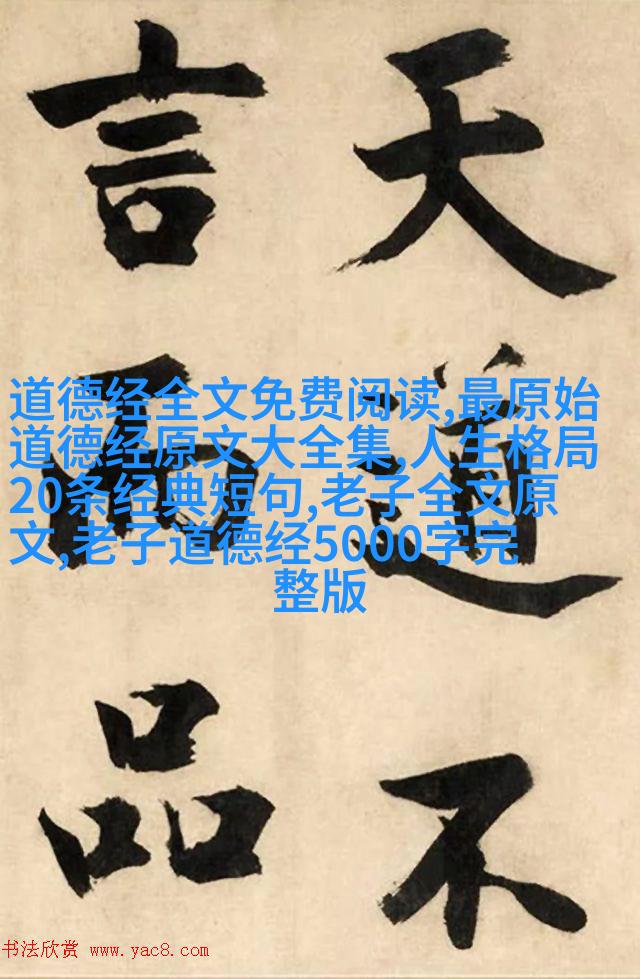 天道不
言而品
道德经全文免费阅读,最原始
道德经原文大全集,人生格局
20条经典短句,老子全文原
文,老子道德经5000字完
整版
书法欣赏 www.yac8.com